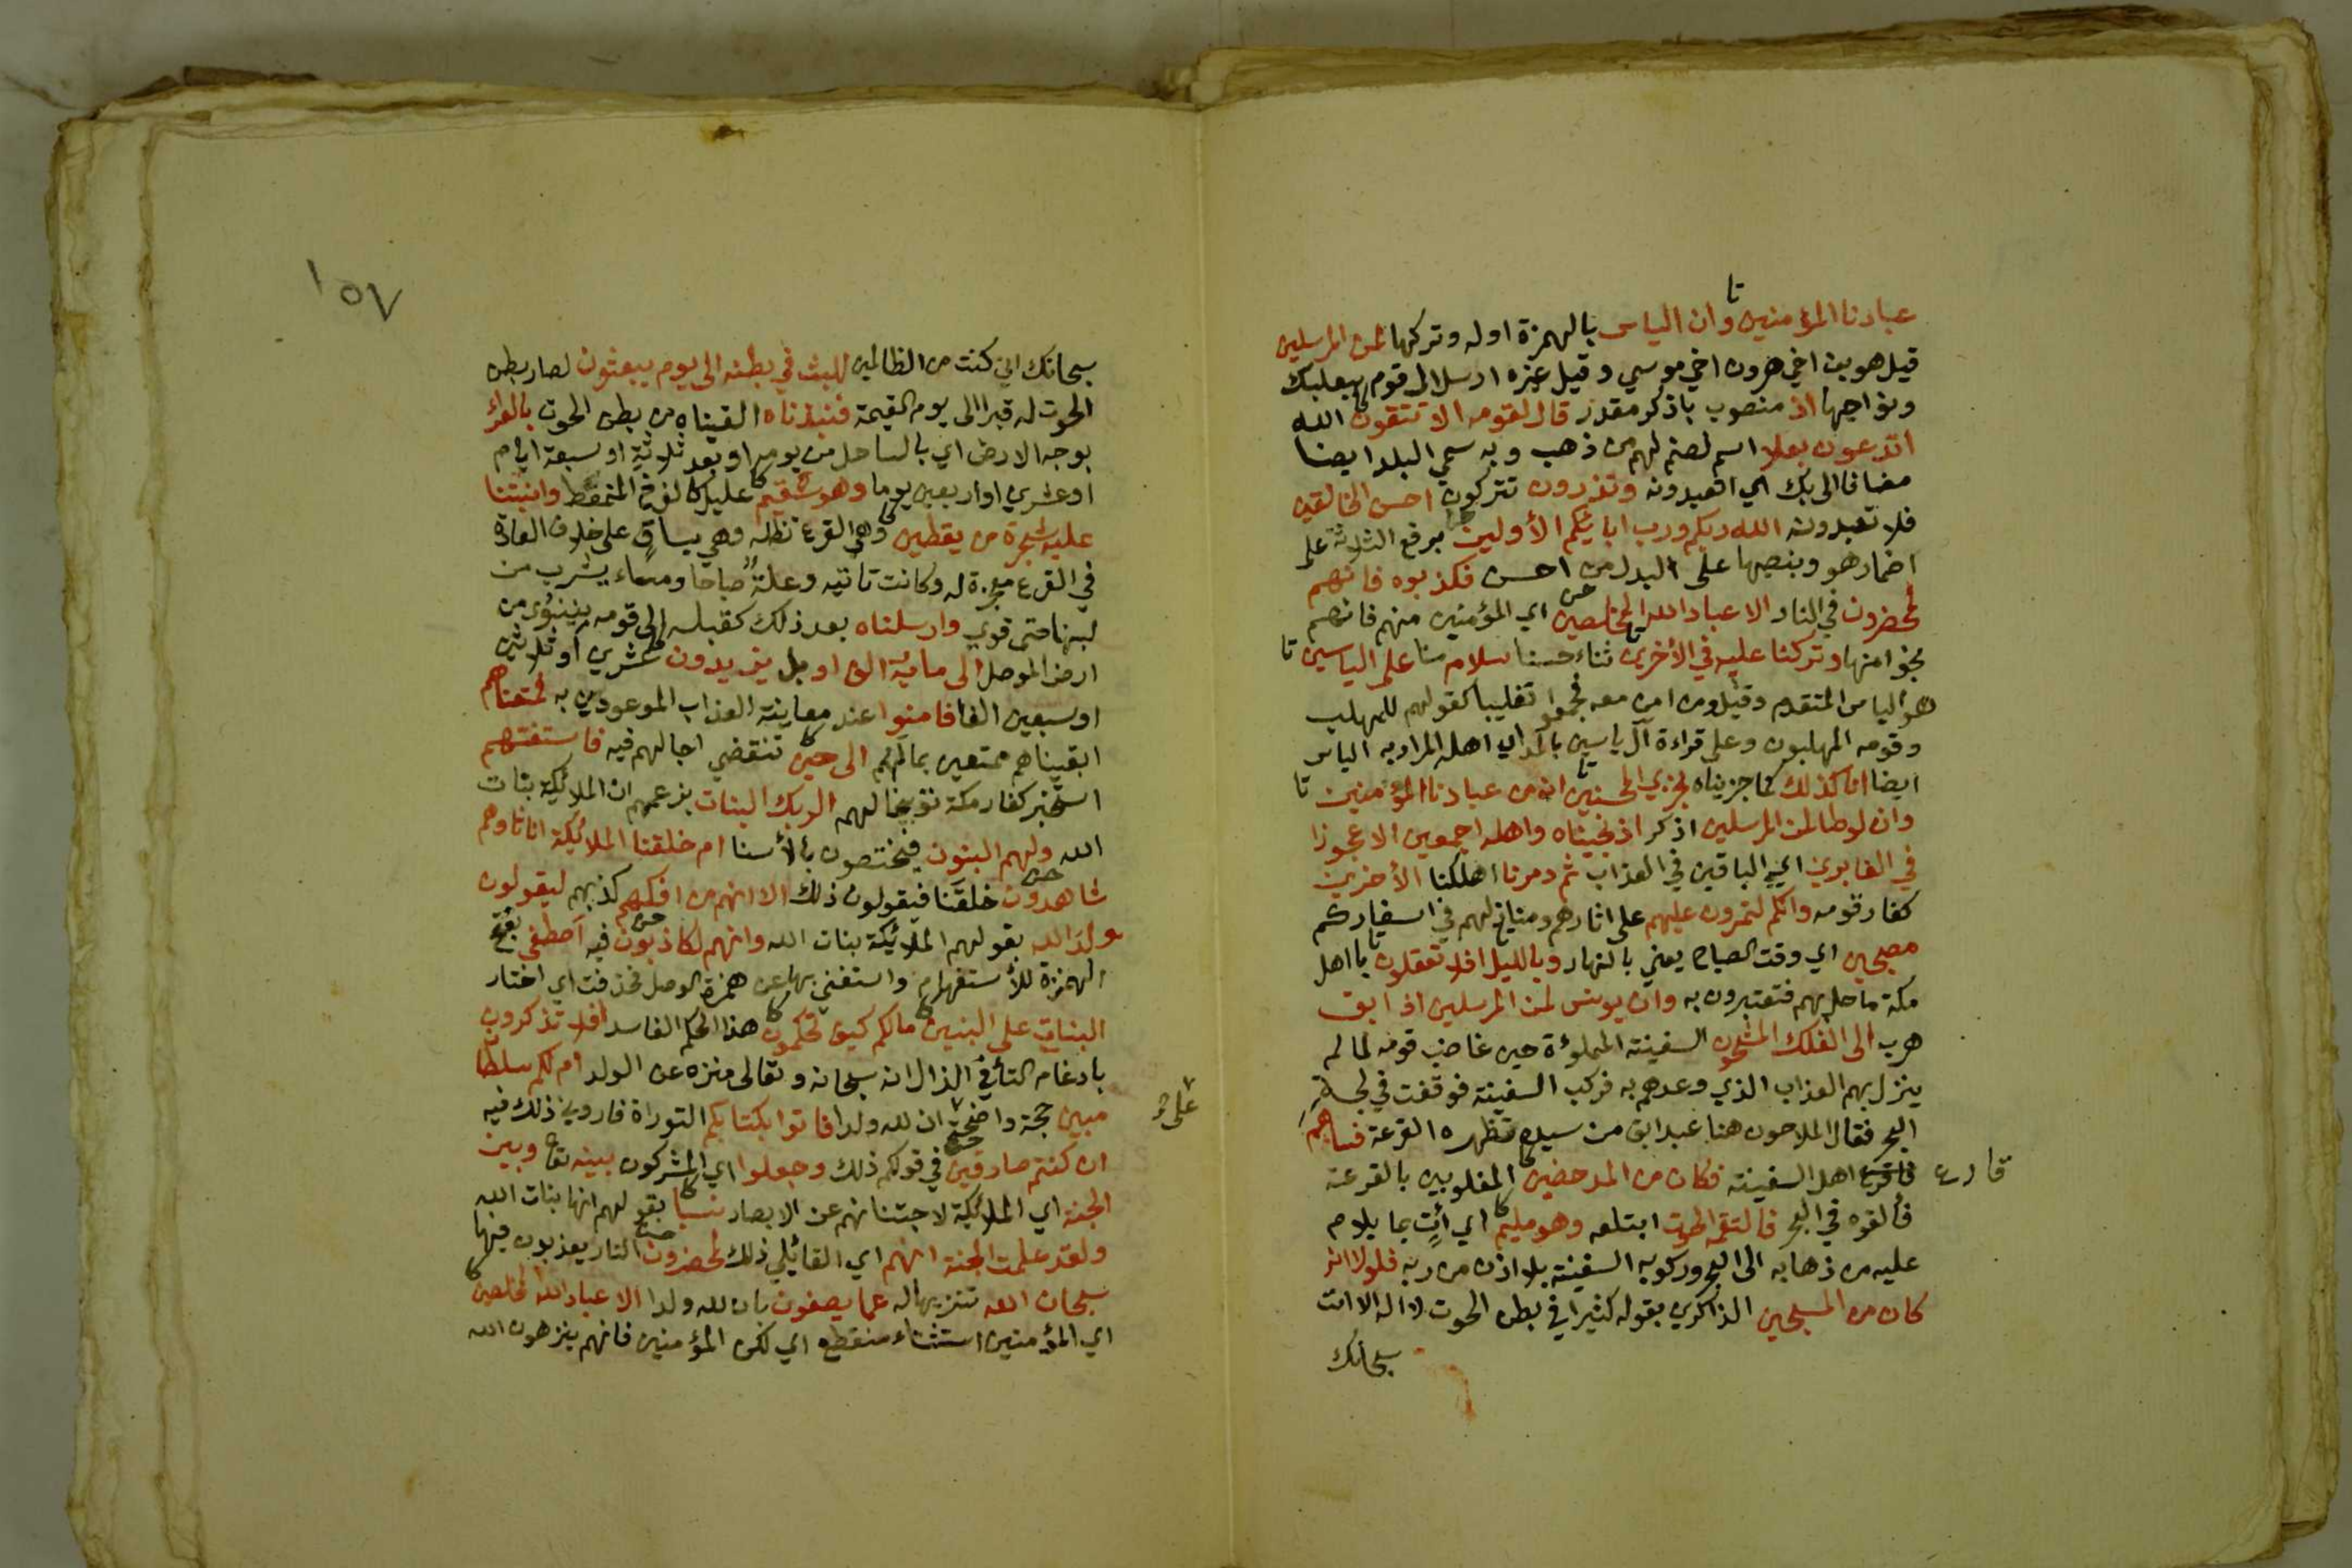 عبادنا المؤمنين وان الياس بالهمزة اوله وتركها لمن المرسلين
قيل هو بن اخي هرون اخي موسي وقيل غيره ارسل الى قوم ببعلبك
ونواحيها اذ منصوب باذكر مقدر قال لقومه الا تتقون الله
اتدعون بعلا اسم لصنم لهم من ذهب وبه سمي البلد ايضا
مضافا الى بك اي اتعبدونه وتذرون تتركون احسن الخالقين
فلا تعبدونه الله ربكم ورب ابائيكم الأولين برفع الثلاثة على
اضمار هو وبنصبها على البدل من احسن فكذبوه فانهم
لمحضرون في النار الا عباد الله المخلصين اي المؤمنين منهم فانهم
نجوا منها وتركنا عليه في الأخرين ثناء حسنا سلام منا على الياسين
هو الياس المتقدم وقيل ومن امن معه فجمعوا تغليبا كقولهم للمهلب
وقومه المهلبون وعلى قراءة آل ياسين بالمد اي اهله المراد به الياس
ايضا انا كذلك كما جزيناه نجزي المحسنين انه من عبادنا المؤمنين
وان لوطا لمن المرسلين اذكر اذ نجيناه واهله اجمعين الا عجوزا
في الغابرين اي الباقين في العذاب ثم دمرنا اهلكنا الأخرين
كفار قومه وانكم لتمرون عليهم على اثارهم ومنازلهم في اسفاركم
مصبحين اي وقت الصباح يعني بالنهار وبالليل افلا تعقلون يا اهل
مكة ما حل بهم فتعتبرون به وان يونس لمن المرسلين اذ ابق
هرب الى الفلك المشحون السفينة المملوءة حين غاضب قومه لما لم
ينزل بهم العذاب الذي وعدهم به فركب السفينة فوقفت في لجة
البحر فقال الملاحون هنا عبد ابق من سيده تظهره القرعة فساهم
قارع اهل السفينة فكان من المدحضين المغلوبين بالقرعة
فألقوه في البحر فالتقمه الحوت ابتلعه وهو مليم اي أتٍ بما يلام
عليه من ذهابه الى البحر وركوبه السفينة بلا اذن من ربه فلولا انه
كان من المسبحين الذاكرين بقوله كثيرا في بطن الحوت لا اله الا انت
سبحانك
١٥٧
سبحانك اني كنت من الظالمين للبث في بطنه الى يوم يبعثون لصار بطن
الحوت له قبرا الى يوم القيمة فنبذناه القيناه من بطن الحوت بالعراء
بوجه الارض اي بالساحل من يومه او بعد ثلاثة او سبعة ايام
او عشرين او اربعين يوما وهو سقيم عليل كالفرخ الممعط وانبتنا
عليه شجرة من يقطين وهي القرع تظله وهي بساق على خلاف العادة
في القرع معجزة له وكانت تاتيه وعلة صباحا ومساء يشرب من
لبنها حتى قوي وارسلناه بعد ذلك كقبله الى قومه بنينوى من
ارض الموصل الى ماية الف او بل يزيدون عشرين او ثلاثين
او سبعين الفا فامنوا عند معاينة العذاب الموعودين به فمتعناهم
ابقيناهم ممتعين بمالهم الى حين تنقضي اجالهم فيه فاستفتهم
استخبر كفار مكة توبيخا لهم الربك البنات بزعمهم ان الملائكة بنات
الله ولهم البنون فيختصون بالأسنا ام خلقنا الملائكة اناثا وهم
شاهدون خلقنا فيقولون ذلك الا انهم من افكهم كذبهم ليقولون
ولد الله بقولهم الملائكة بنات الله وانهم لكاذبون فيه أصطفى بفتح
الهمزة للأستفهام واستغني بها عن همزة الوصل فحذفت اي اختار
البنات على البنين ما لكم كيف تحكمون هذا الحكم الفاسد افلا تذكرون
بادغام التأ في الذال انه سبحانه وتعالى منزه عن الولد ام لكم سلطان
مبين حجة واضحة ان لله ولدا فاتوا بكتابكم التوراة فاروني ذلك فيه
ان كنتم صادقين في قولكم ذلك وجعلوا اي المشركون بينه تعا وبين
الجنة اي الملائكة لاجتنانهم عن الابصار نسبا بقولهم انها بنات الله
ولقد علمت الجنة انهم اي القائلين ذلك لمحضرون النار يعذبون فيها
سبحان الله تنزيها له عما يصفون بان لله ولدا الا عباد الله المخلصين
اي المؤمنين استثناء منقطع اي لكن المؤمنين فانهم ينزهون الله